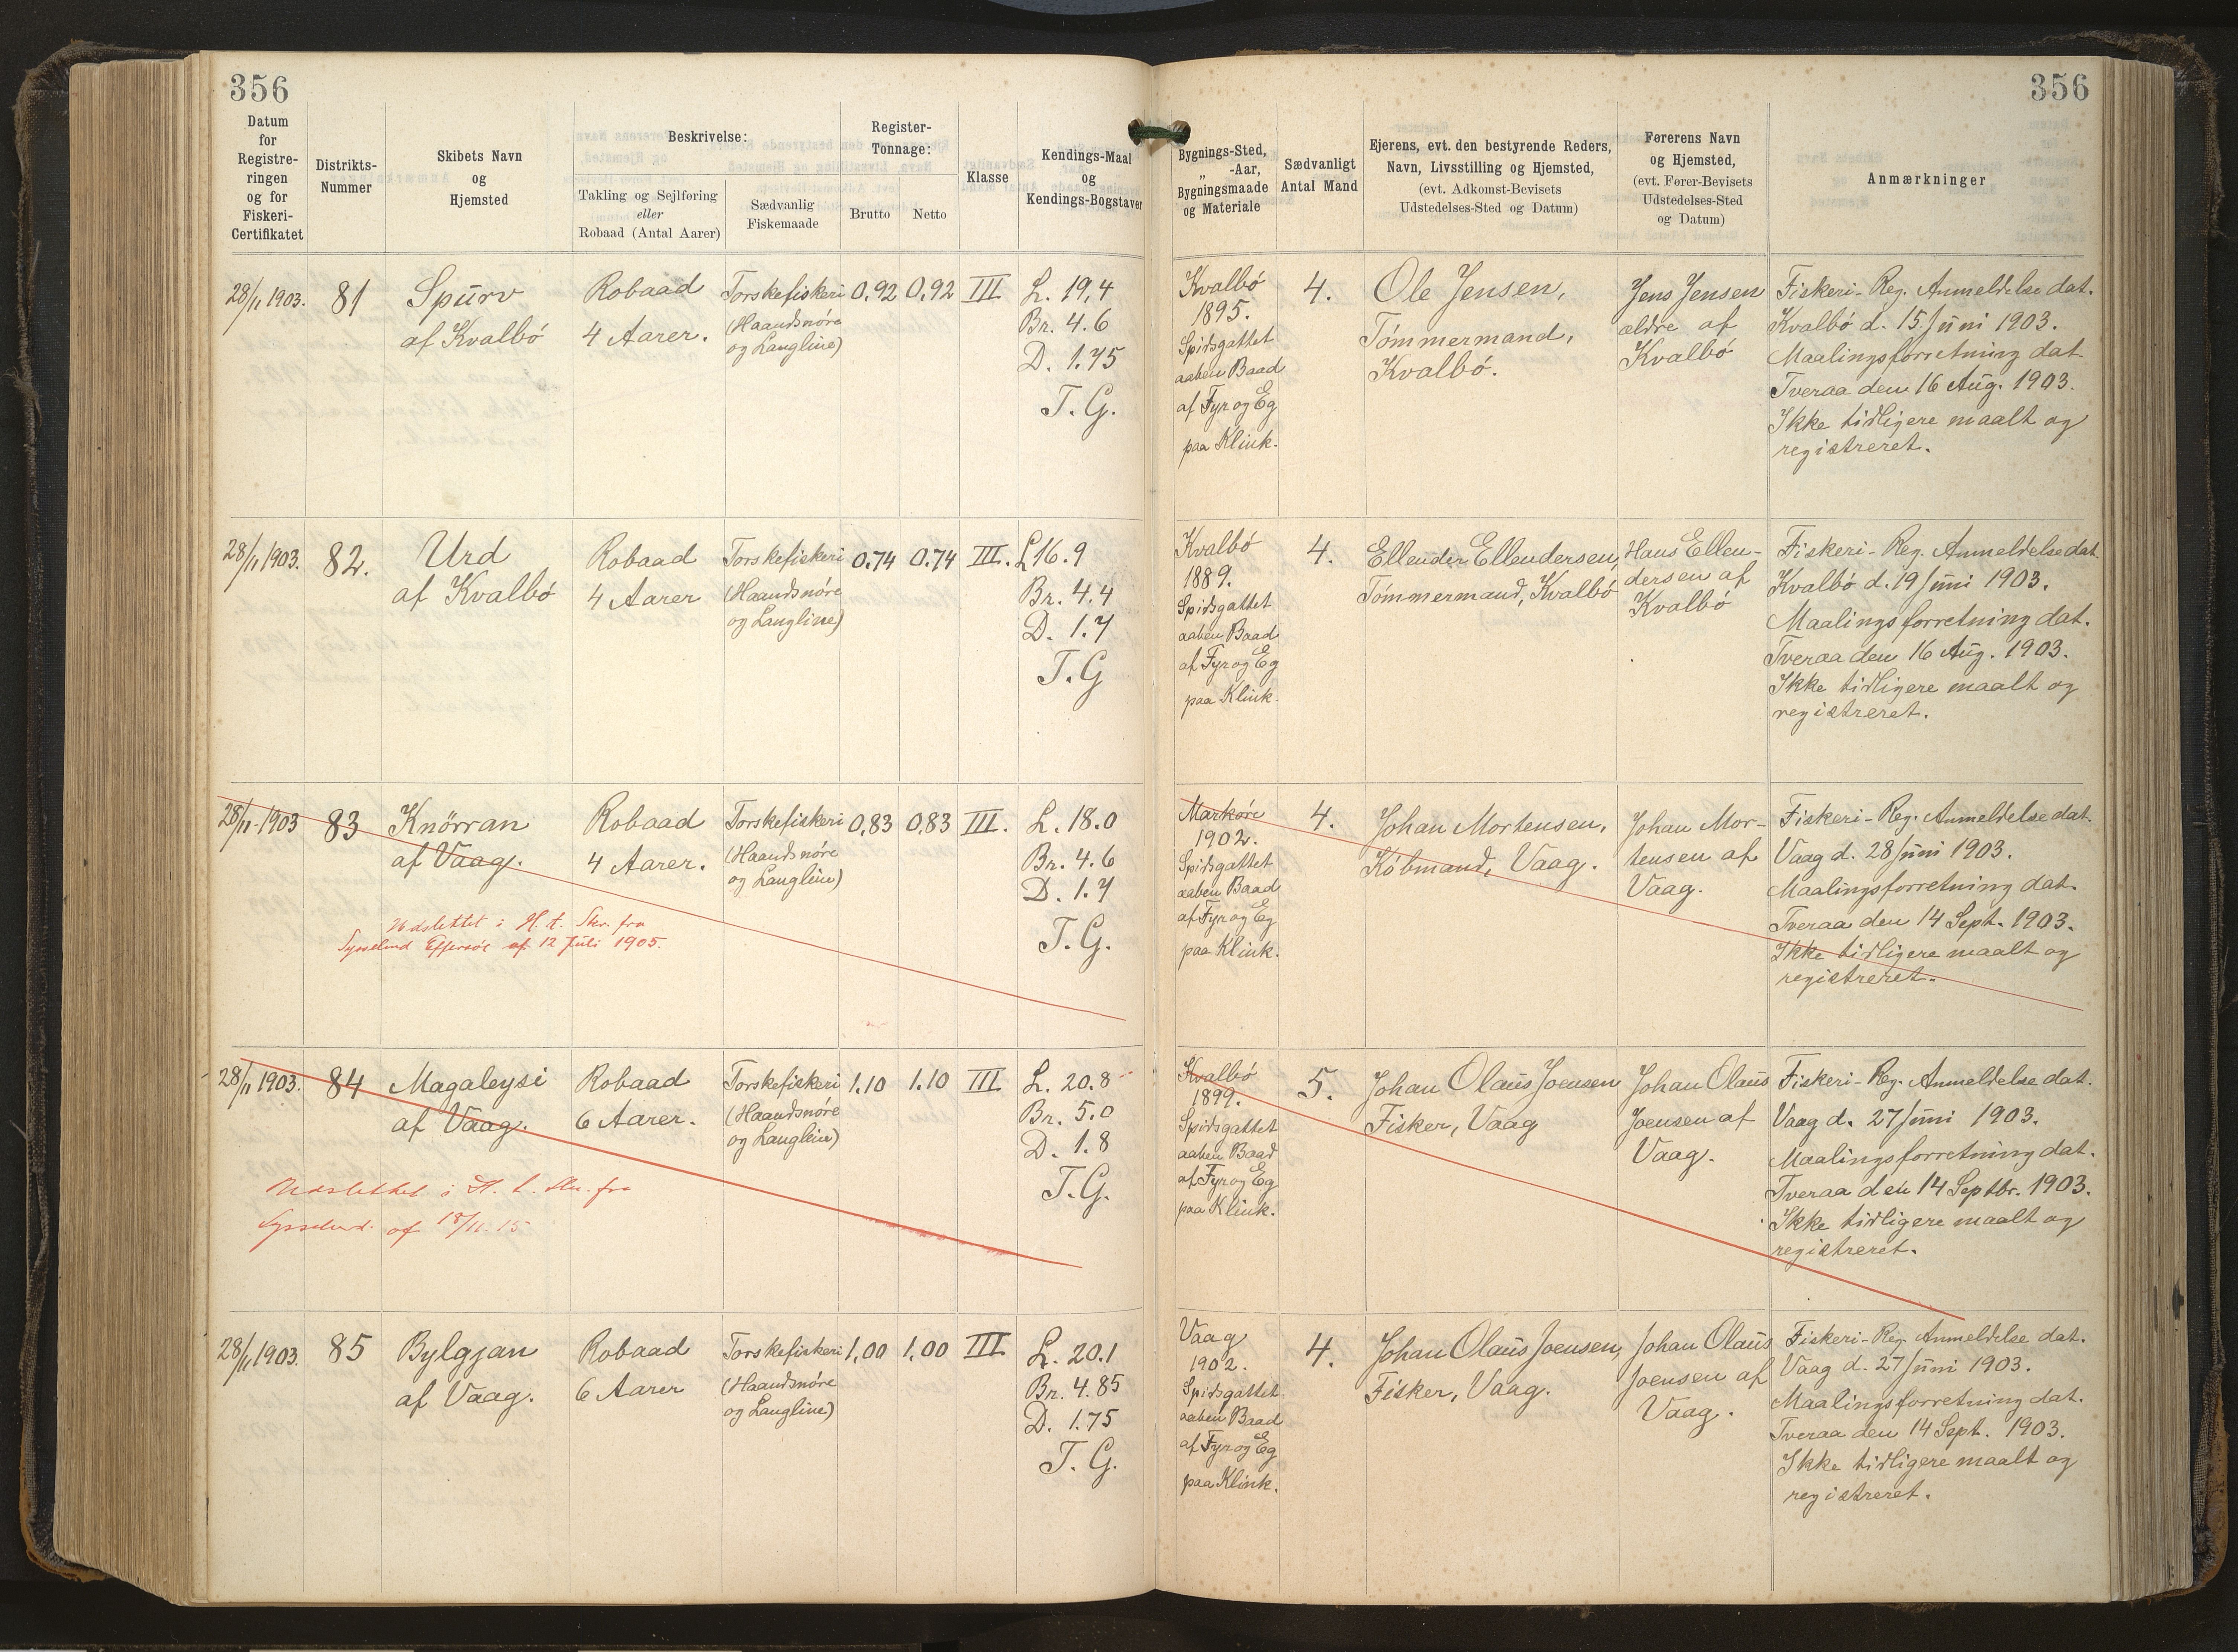 356
356
Datum
for
Registre-
ringen
og for
Fiskeri-
Certifikatet
Distrikts-
Nummer
Skibets Navn
og
Hjemsted
Beskrivelse:
Takling og Sejlføring
eller
Robaad (Antal Aarer)
Sædvanlig
Fiskemaade
Register-
Tonnage:
Brutto
Netto
Klasse
Kendings-Maal
og
Kendings-Bogstaver
Bygnings-Sted,
„ -Aar,
Bygningsmaade
og Materiale
Sædvanligt
Antal Mand
Ejerens, evt. den bestyrende Reders,
Navn, Livsstilling og Hjemsted,
(evt. Adkomst-Bevisets
Udstedelses-Sted og Datum)
Førerens Navn
og Hjemsted,
(evt. Fører-Bevisets
Udstedelses-Sted
og Datum)
Anmærkninger
28/11 1903.
81
Spurv
af Kvalbö
Robaad
4 Aarer.
Torskefiskeri
(Haandsnöre
og Langline)
0,92
0,92
III
L. 19,4
Br. 4.6
D. 1.75
T. G.
Kvalbö
1895.
Spidsgattet
aaben Baad
af Fyr og Eg
paa Klink.
4.
Ole Jensen,
Tömmermand,
Kvalbö.
Jens Jensen
ældre af
Kvalbö
Fiskeri-Reg. Anmeldelse dat.
Kvalbö d. 15. Juni 1903.
Maalingsforretning dat.
Tveraa den 16 Aug. 1903.
Ikke tidligere maalt og
registreret.
28/11 1903.
82.
Urd
af Kvalbö
Robaad
4 Aarer
Torskefiskeri
(Haandsnöre
og Langline)
0.74
0.74
III.
L 16.9
Br. 4.4
D. 1.7
T. G
Kvalbö
1889.
Spidsgattet
aaben Baad
af Fyr og Eg
paa Klink.
4.
Ellender Ellendersen,
Tömmermand, Kvalbö
Hans Ellen-
dersen af
Kvalbö
Fiskeri-Reg. Anmeldelse dat.
Kvalbö d. 19 Juni 1903.
Maalingsforretning dat.
Tveraa den 16 Aug. 1903.
Ikke tidligere maalt og
registreret.
28/11 1903
83
Knörran
af Vaag.
Udslettet i H. t. Skr. fra
af 12 Juli 1905.
Robaad
4 Aarer.
Torskefiskeri
(Haandsnöre
og Langlein)
0,83
0,83
III.
L. 18.0
Br. 4.6
D. 1.7
T. G.
Markøre
1902.
Spidsgattet
aaben Baad
af Fyr og Eg
paa Klink.
4.
Johan Mortensen,
Köbmand, Vaag.
Johan Mor-
tensen af
Vaag.
Fiskeri-Reg. Anmeldelse dat.
Vaag d. 28 Juni 1903.
Maalingsforretning dat.
Tveraa den 14 Sept. 1903.
Ikke tidligere maalt og
registreret.
28/11 1903.
84
Magaleysi
af Vaag.
Udslettet i H. t. Skr. fra
Sysselmd. af 18/11. 15
Robaad
6 Aarer.
Torskefiskeri
(Haandsnöre
og Langlein)
1.10
1.10
III
L. 20.8
Br. 5.0
D. 1.8
T. G.
Kvalbö
1899.
Spidsgattet
aaben Baad
af Fyr og Eg
paa Klink.
5.
Johan Olaus Joensen
Fisker, Vaag
Johan Olaus
Joensen af
Vaag.
Fiskeri-Reg. Anmeldelse dat.
Vaag d. 27 Juni 1903.
Maalingsforretning dat.
Tveraa den 14 Septbr. 1903.
Ikke tidligere maalt og
registreret.
28/11 1903.
85
Bylgjan
af Vaag.
Robaad
6 Aarer
Torskefiskeri
(Haandsnöre
og Langline)
1,00
1,00
III
L. 20.1
Br. 4.85
D. 1.75
T. G.
Vaag
1902.
Spidsgattet
aaben Baad
af Fyr og Eg
paa Klink.
4.
Johan Olaus Joensen,
Fisker, Vaag.
Johan Olaus
Joensen af
Vaag.
Fiskeri-Reg. Anmeldelse dat.
Vaag d. 27 Juni 1903.
Maalingsforretning dat.
Tveraa den 14 Sept. 1903.
Ikke tidligere maalt og
registreret.